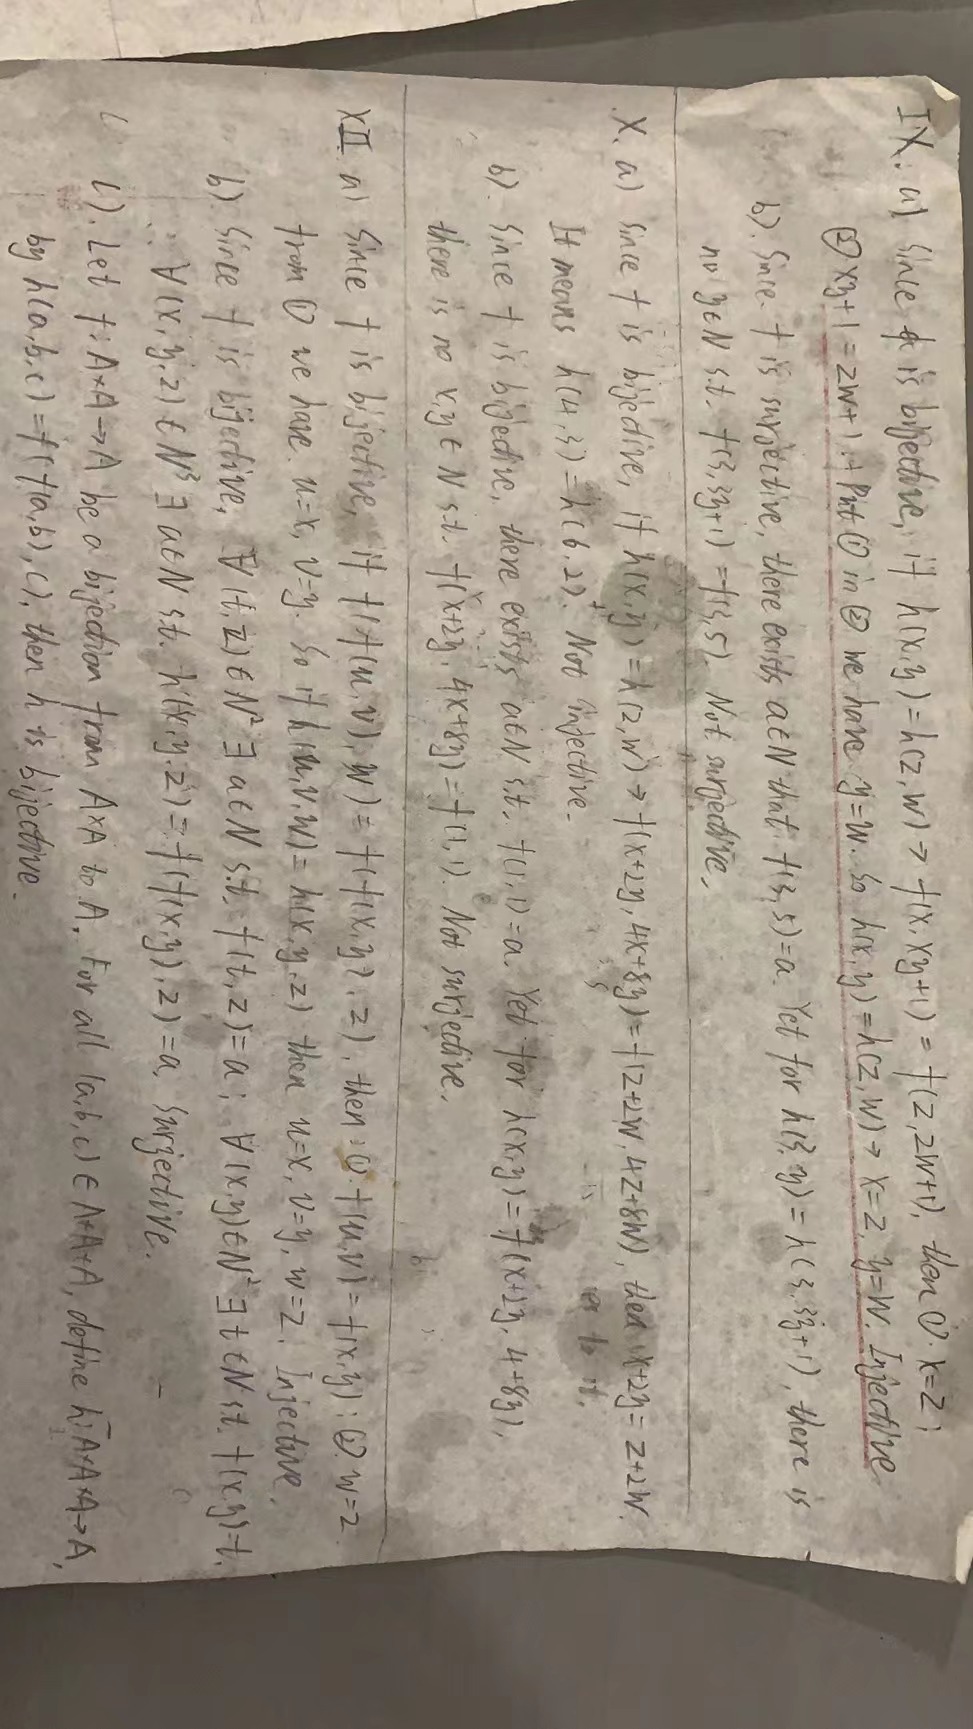 IX. a). Since f is bijective, if h(x,y)=h(z,w) → f(x,xy+1) = f(z,zw+1), then ①. x=z;
② xy+1=zw+1. Put ① in ② we have y=w. So h(x,y)=h(z,w) → x=z, y=w. Injective
b). Since f is surjective, there exists a∈N that f(3,5)=a. Yet for h(3,y)=h(3,3y+1), there is
no y∈N s.t. f(3,3y+1)=f(3,5). Not surjective.
X. a) Since f is bijective, if h(x,y)=h(z,w) → f(x+2y,4x+8y)=f(z+2w,4z+8w), then x+2y=z+2w.
It means h(4,3)=h(6,2). Not injective.
b). Since f is bijective, there exists a∈N s.t. f(1,1)=a. Yet for h(x,y)=f(x+2y, 4+8y),
there is no x,y∈N s.t. f(x+2y,4x+8y)=f(1,1). Not surjective.
XII a) Since f is bijective, if f(f(u,v),w)=f(f(x,y),z), then: ①. f(u,v)=f(x,y); ②. w=z.
from ① we have u=x, v=y. So if h(u,v,w)=h(x,y,z) then u=x, v=y, w=z. Injective.
b) Since f is bijective, ∀(t,z)∈N² ∃ a∈N s.t. f(t,z)=a; ∀(x,y)∈N² ∃t∈N s.t. f(x,y)=t.
∴ ∀(x,y,z)∈N³ ∃ a∈N s.t. h(x,y,z)=f(f(x,y),z)=a. Surjective.
c). Let f: A×A→A be a bijection from A×A to A. For all (a,b,c)∈A×A×A, define h: A×A×A→A,
by h(a,b,c)=f(f(a,b),c), then h is bijective.